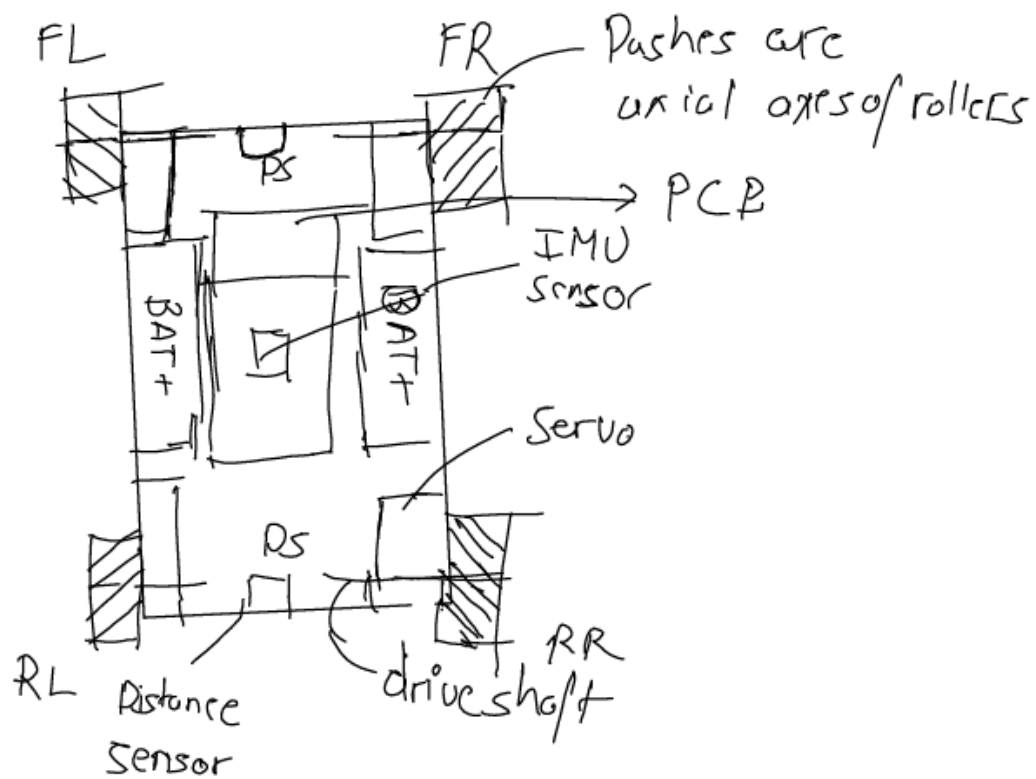 FL
FR
Dashes are
axial axes of rollers
DS
PCB
IMU
sensor
BAT+
BAT+
Servo
DS
RL
Distance
sensor
drive shaft
RR